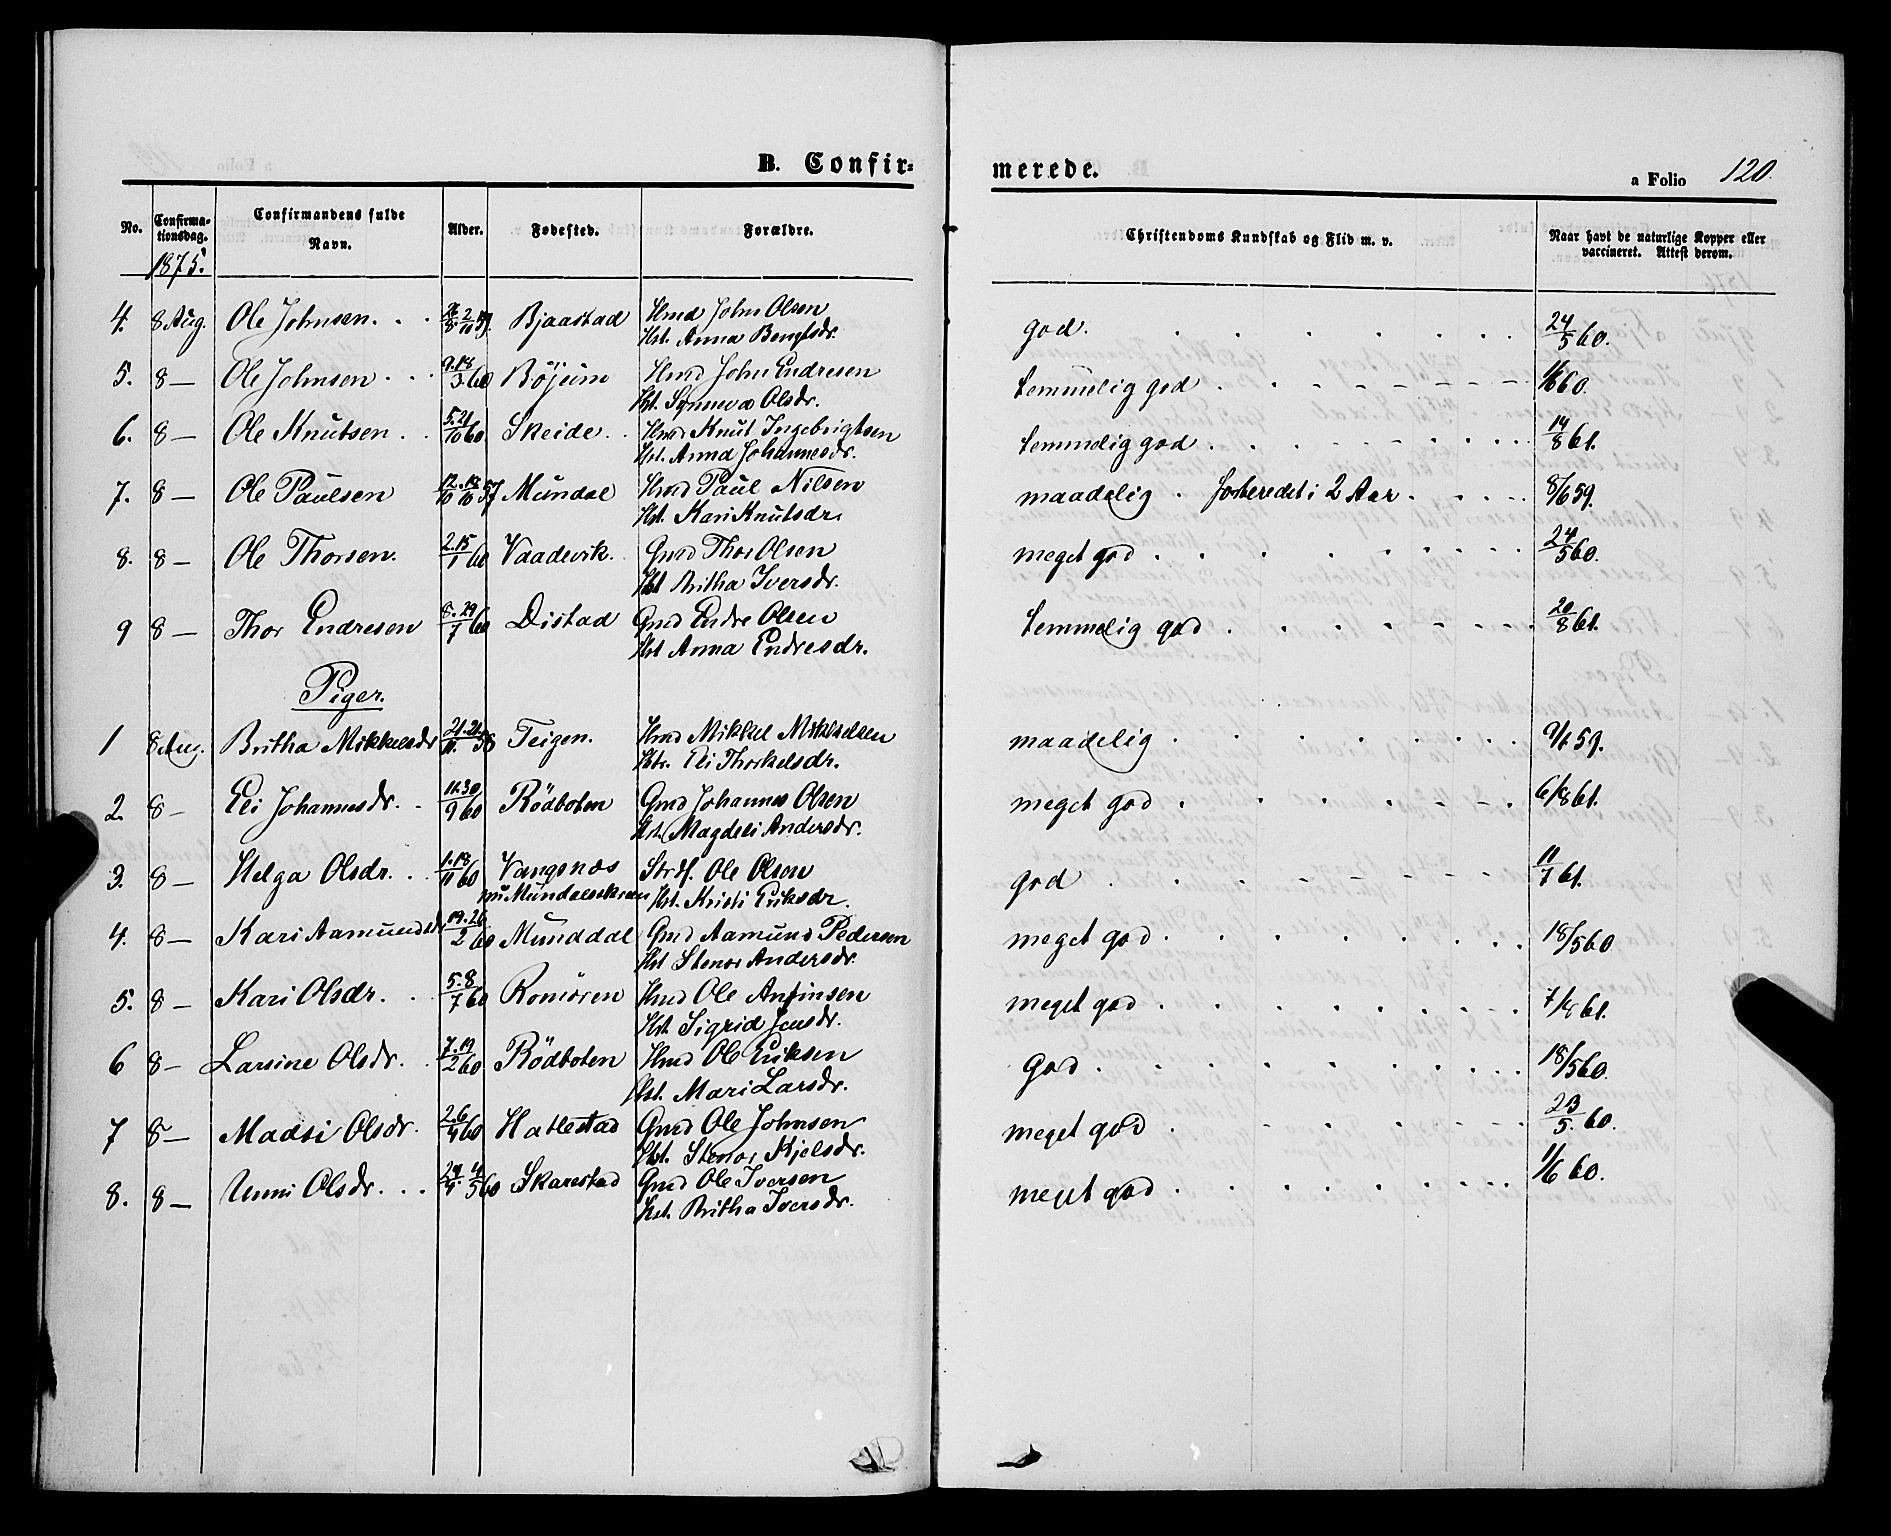 B. Confir-
merede.
a Folio 120.
No.
Confirma-
tionsdag.
1875.
Confirmandens fulde
Navn.
Alder.
Fødested.
Forældre.
Christendoms Kundskab og Flid m. v.
Naar havt de naturlige Kopper eller
vaccineret. Attest derom.
4. 8 Aug. Ole Johnsen. Bjaastad Hmd John Olsen god. 24/5 60.
Hst. Anna Bengtsdr.
5. 8 — Ole Johnsen 9.18/3 60 Böjum Hmd John Endresen temmelig god 1/6 60.
Hst. Synneva Olsdr.
6. 8 — Ole Knutsen 5.21/10 60 Skeide Hmd Knut Ingebrigtsen temmelig god 14/8 61.
Hst. Anna Johannesdr.
7. 8 — Ole Paulsen Mundal Hmd Paul Nilsen maadelig. forberedet i 2 Aar. 8/6 59.
Hst. Kari Knutsdr.
8. 8 — Ole Thorsen. 2.15/1 60 Vaadevik. Gmd Thor Olsen meget god 24/5 60.
Hst Britha Iversdr.
9 8 — Thor Endresen 8.29/7 60 Distad Gmd Endre Olsen temmelig god 20/8 61.
Hst Anna Endresdr.
Piger.
1 8 Aug. Britha Mikkelsdr Teigen. Hmd Mikkel Mikkelsen maadelig 59.
Hst. Eli Thorkelsdr.
2. 8 — Eli Johannesdr. 11.30/9 60 Rödboten Gmd Johannes Olsen meget god 6/8 61.
Hst. Magdeli Andersdr.
3. 8 — Helga Olsdr. 1.18/11 60 Vangsnæs Strdf. Ole Olsen god 11/7 61.
nu Mundalsekren Hst. Kristi Eriksdr.
4. 8 — Kari Aamundsdr 19.26/2 60 Munddal Gmd Aamund Pedersen meget god 18/5 60
Hst Stenor Andersdr.
5. 8 — Kari Olsdr. 5.8/7 60 Romören Hmd Ole Anfinsen meget god 7/8 61.
Hst. Sigrid Jensdr.
6 8 — Larsine Olsdr. 7.19/2 60 Rödboten Hmd Ole Eriksen God 18/5 60.
Hst. Mari Larsdr.
7 8 — Madsi Olsdr. 2.6/4 60 Hatlestad Gmd Ole Johnsen meget god 23/5. 60.
Hst. Stenor Kjelsdr.
8. 8 — Unni Olsdr. Skarestad Gmd Ole Iversen meget god 11/6 60.
Hst. Britha Iversdr.